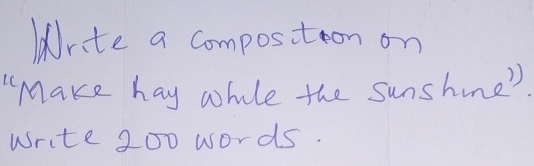 Write a composition on
"Make hay while the sunshine".
Write 200 words.